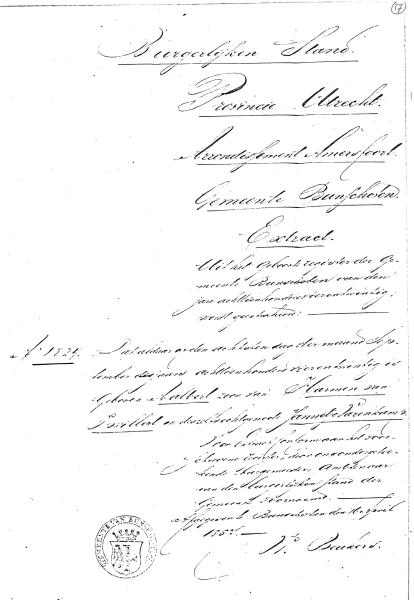 17
Burgerlijken Stand.
Provincie Utrecht.
Arrondissement Amersfoort.
Gemeente Bunschoten.
Extract.
Uit het Geboorteregister der Ge-
meente Bunschoten van den
jare achttienhonderd vierentwintig,
No. 1824. Dat aldaar op den achtsten dag der maand Sep-
tember des jaars achttienhonderd vierentwintig is
Geboren Aalbert zoon van Harmen van
en deszelfs echtgenoote Jannetje
Voor Extract conform aan het voor-
schreven register, door ons onderge-
teekende Burgemeester Ambtenaar
van den Burgerlijken Stand der
Gemeente voornoemd.
Afgegeven Bunschoten den April
185
Beukers.
GEMEENTE VAN BUNSCHOTEN